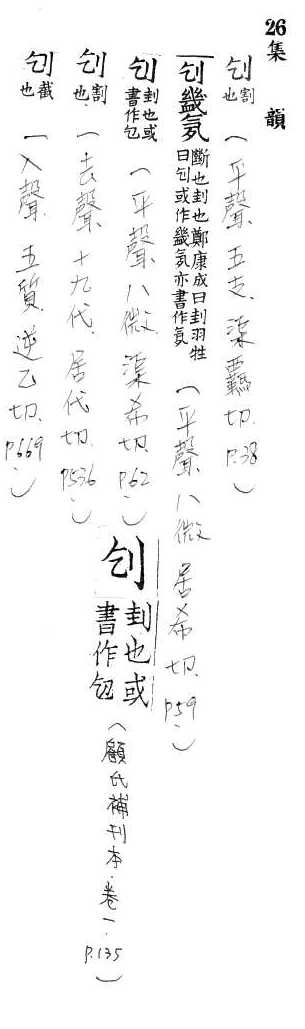 26集韻
刉 割也 (平聲 五支 渠羈切 P.38)
刉 㡬 刏 斷也刲也鄭康成曰刲羽牲曰刉或作㡬刏亦書作
(平聲 八微 居希切 P59)
刉 刲也或書作 (平聲 八微 渠希切 P.62)
刉 割也 (去聲 十九代 居代切 P536)
刉 截也 (入聲 五質 逆乙切 P.669)
刉 刲也或書作
(顧氏補刊本 卷一 P.135)